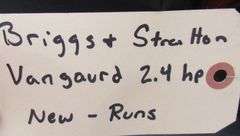 Briggs + Stratton
Vangaurd 2.4 hp
New - Runs